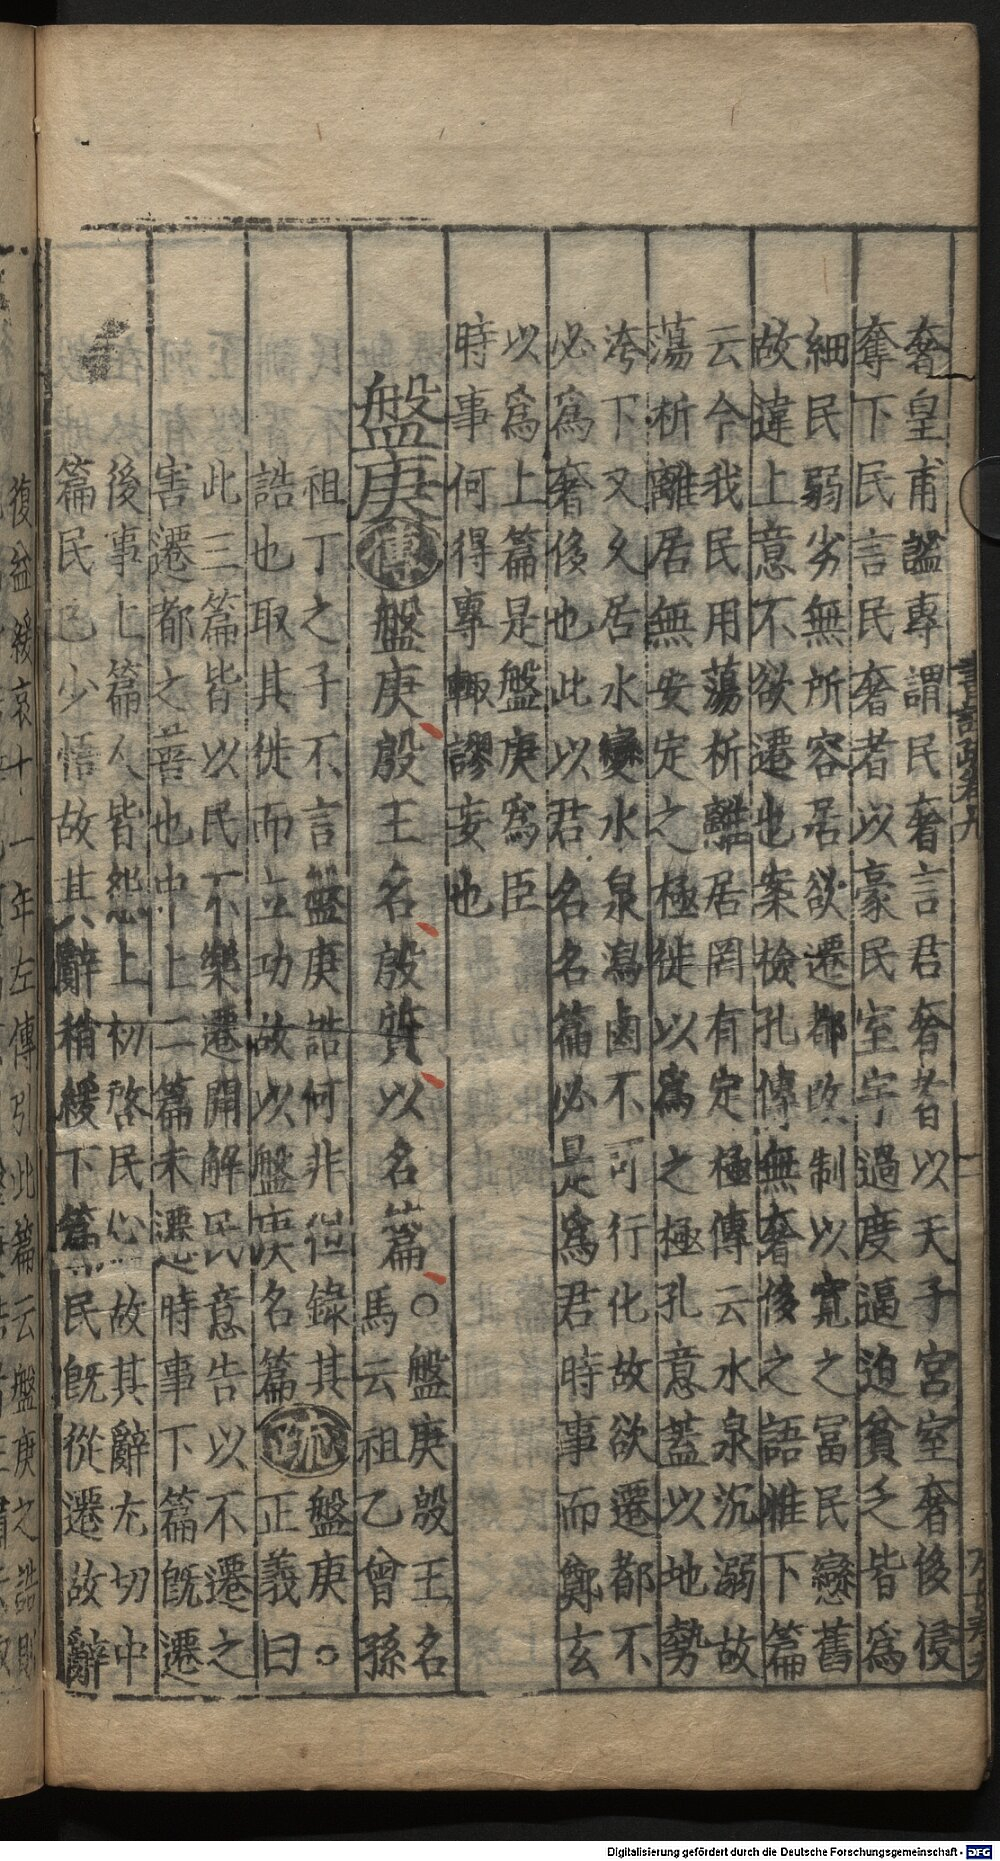 奢皇甫謐專謂民奢言君奢者以天子宮室奢侈侵
奪下民言民奢者以豪民室宇過度逼迫貧乏皆為
細民弱劣無所容居欲遷都改制以寬之冨民戀舊
故違上意不欲遷也案檢孔傳無奢侈之語惟下篇
云今我民用蕩析離居罔有定極傳云水泉沉溺故
蕩析離居無安定之極徙以為之極孔意蓋以地勢
洿下又久居水變水泉瀉鹵不可行化故欲遷都不
必為奢侈也此以君名名篇必是為君時事而鄭玄
以為上篇是盤庚為臣
時事何得專輒謬妄也
盤庚傳盤庚殷王名殷質以名篇
○盤庚殷王名
馬云祖乙曾孫
祖丁之子不言盤庚誥何非但錄其
誥也取其徙而立功故以盤庚名篇
疏
盤庚○
正義曰
此三篇皆以民不樂遷開解民意告以不遷之
害遷都之善也中上二篇未遷時事下篇既遷
後事上篇人皆怨上初啓民心故其辭尤切中
篇民已少悟故其辭稍緩下篇民既從遷故辭
復益緩哀十一年左傳引此篇云盤庚之誥則
Digitalisierung gefördert durch die Deutsche Forschungsgemeinschaft - DFG